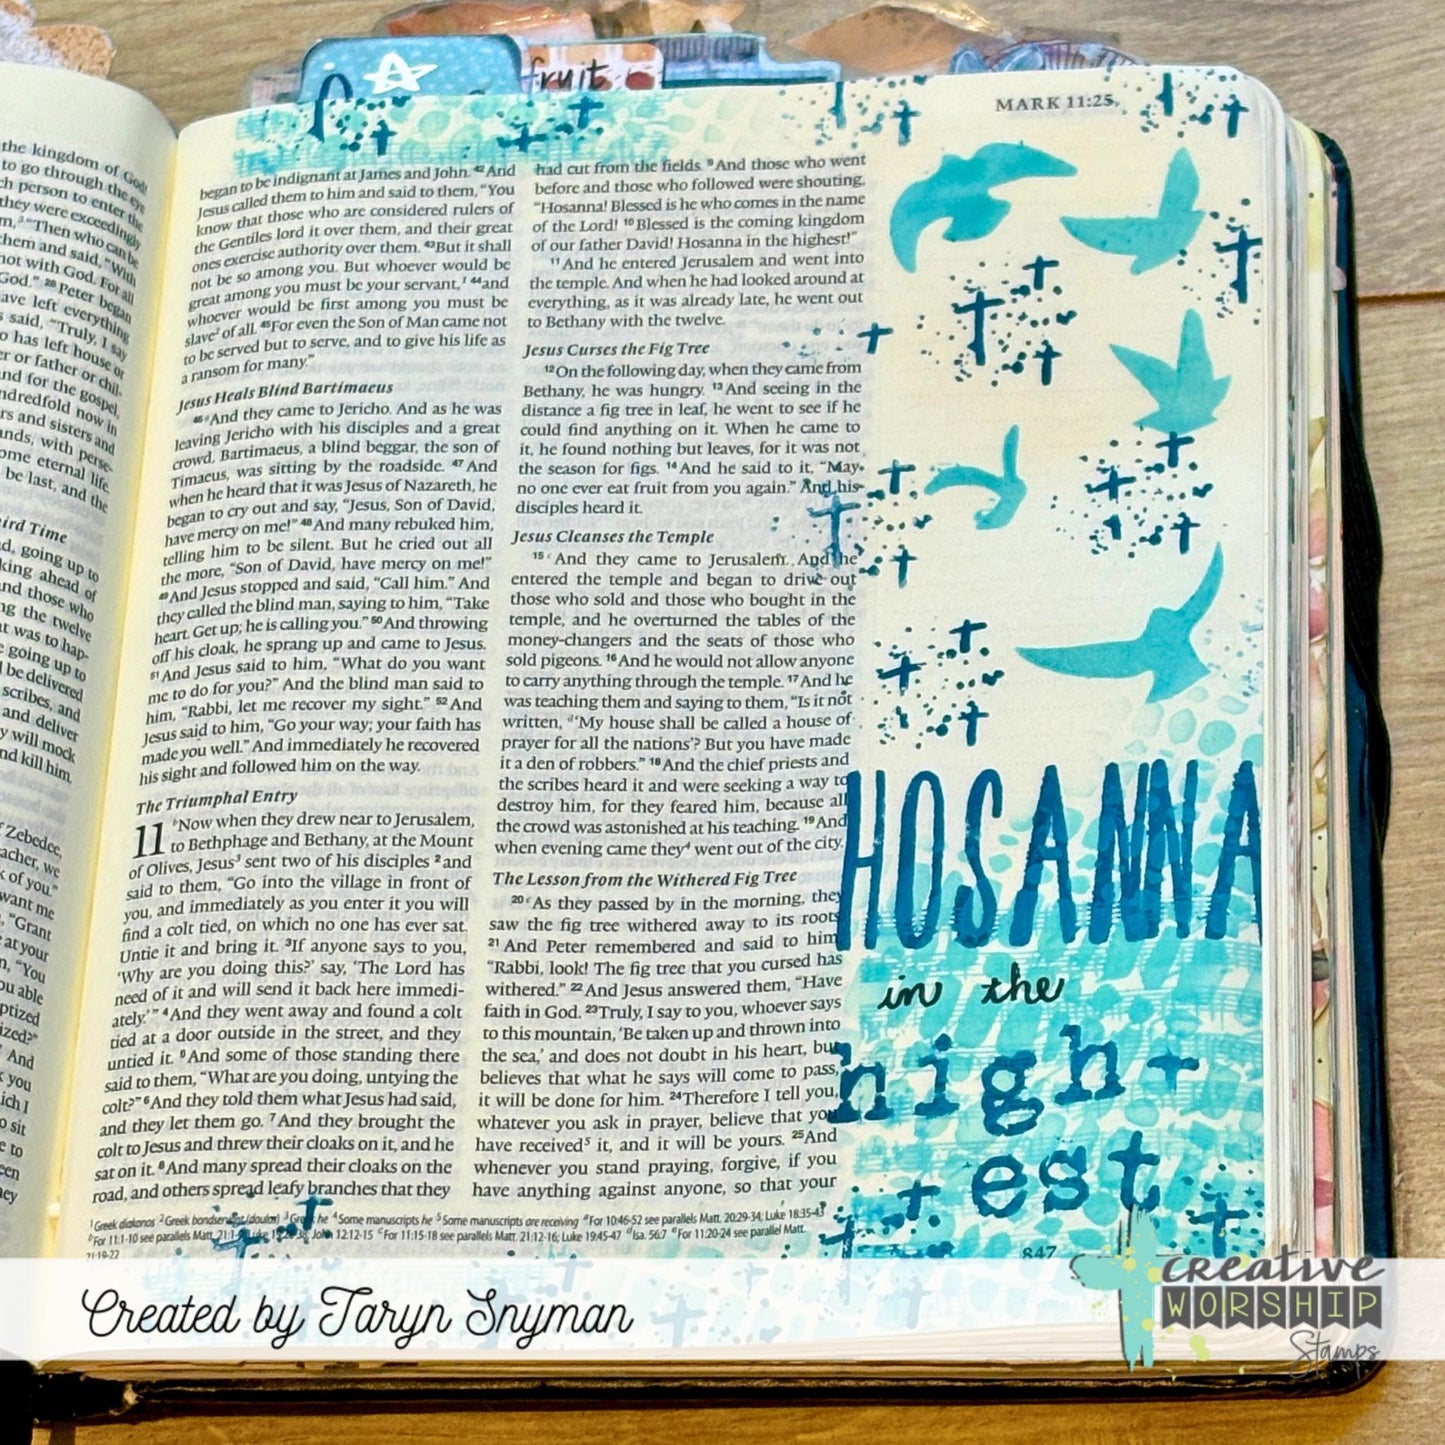 fruit
MARK 11:25
the kingdom of God!
to go through the eye
ch person to enter the
they were exceedingly
"Then who can be
them and said, "With
not with God. For all
God." 28 Peter began
ave left everything
said, "Truly, I say
o has left house or
er or father or chil-
and for the gospel,
ndredfold now in
rs and sisters and
ands, with perse-
ome eternal life.
be last, and the
ird Time
ad, going up to
king ahead of
and those who
ng the twelve
at was to hap-
e going up to
l be delivered
scribes, and
and deliver
y will mock
nd kill him,
f Zebedee,
acher, we
k of you."
want me
"Grant
e at your
"You
ou able
ptized
ized?"
And
k you
ich I
o sit
e to
een
hey
began to be indignant at James and John. 42 And
Jesus called them to him and said to them, "You
know that those who are considered rulers of
the Gentiles lord it over them, and their great
ones exercise authority over them. 43 But it shall
not be so among you. But whoever would be
great among you must be your servant,1 44 and
whoever would be first among you must be
slave2 of all. 45 For even the Son of Man came not
to be served but to serve, and to give his life as
a ransom for many."
Jesus Heals Blind Bartimaeus
46 a And they came to Jericho. And as he was
leaving Jericho with his disciples and a great
crowd, Bartimaeus, a blind beggar, the son of
Timaeus, was sitting by the roadside. 47 And
when he heard that it was Jesus of Nazareth, he
began to cry out and say, "Jesus, Son of David,
have mercy on me!" 48 And many rebuked him,
telling him to be silent. But he cried out all
the more, "Son of David, have mercy on me!"
49 And Jesus stopped and said, "Call him." And
they called the blind man, saying to him, "Take
heart. Get up; he is calling you." 50 And throwing
off his cloak, he sprang up and came to Jesus.
51 And Jesus said to him, "What do you want
me to do for you?" And the blind man said to
him, "Rabbi, let me recover my sight." 52 And
Jesus said to him, "Go your way; your faith has
made you well." And immediately he recovered
his sight and followed him on the way.
The Triumphal Entry
11 b Now when they drew near to Jerusalem,
to Bethphage and Bethany, at the Mount
of Olives, Jesus3 sent two of his disciples 2 and
said to them, "Go into the village in front of
you, and immediately as you enter it you will
find a colt tied, on which no one has ever sat.
Untie it and bring it. 3 If anyone says to you,
'Why are you doing this?' say, 'The Lord has
need of it and will send it back here immedi-
ately.'" 4 And they went away and found a colt
tied at a door outside in the street, and they
untied it. 5 And some of those standing there
said to them, "What are you doing, untying the
colt?" 6 And they told them what Jesus had said,
and they let them go. 7 And they brought the
colt to Jesus and threw their cloaks on it, and he
sat on it. 8 And many spread their cloaks on the
road, and others spread leafy branches that they
had cut from the fields. 9 And those who went
before and those who followed were shouting,
"Hosanna! Blessed is he who comes in the name
of the Lord! 10 Blessed is the coming kingdom
of our father David! Hosanna in the highest!"
11 And he entered Jerusalem and went into
the temple. And when he had looked around at
everything, as it was already late, he went out
to Bethany with the twelve.
Jesus Curses the Fig Tree
12 On the following day, when they came from
Bethany, he was hungry. 13 And seeing in the
distance a fig tree in leaf, he went to see if he
could find anything on it. When he came to
it, he found nothing but leaves, for it was not
the season for figs. 14 And he said to it, "May
no one ever eat fruit from you again." And his
disciples heard it.
Jesus Cleanses the Temple
15 c And they came to Jerusalem. And he
entered the temple and began to drive out
those who sold and those who bought in the
temple, and he overturned the tables of the
money-changers and the seats of those who
sold pigeons. 16 And he would not allow anyone
to carry anything through the temple. 17 And he
was teaching them and saying to them, "Is it not
written, d 'My house shall be called a house of
prayer for all the nations'? But you have made
it a den of robbers." 18 And the chief priests and
the scribes heard it and were seeking a way to
destroy him, for they feared him, because all
the crowd was astonished at his teaching. 19 And
when evening came they4 went out of the city.
The Lesson from the Withered Fig Tree
20 e As they passed by in the morning, they
saw the fig tree withered away to its roots
21 And Peter remembered and said to him
"Rabbi, look! The fig tree that you cursed has
withered." 22 And Jesus answered them, "Have
faith in God. 23 Truly, I say to you, whoever says
to this mountain, 'Be taken up and thrown into
the sea,' and does not doubt in his heart, but
believes that what he says will come to pass,
it will be done for him. 24 Therefore I tell you,
whatever you ask in prayer, believe that you
have received5 it, and it will be yours. 25 And
whenever you stand praying, forgive, if you
have anything against anyone, so that your
HOSANNA
in the
high-
est
1 Greek diakonos 2 Greek bondservant (doulos) 3 Greek he 4 Some manuscripts he 5 Some manuscripts are receiving a For 10:46-52 see parallels Matt. 20:29-34; Luke 18:35-43
b For 11:1-10 see parallels Matt. 21:1-9; Luke 19:29-38; John 12:12-15 c For 11:15-18 see parallels Matt. 21:12-16; Luke 19:45-47 d Isa. 56:7 e For 11:20-24 see parallel Matt.
21:19-22
847
Created by Taryn Snyman
creative
WORSHIP
Stamps